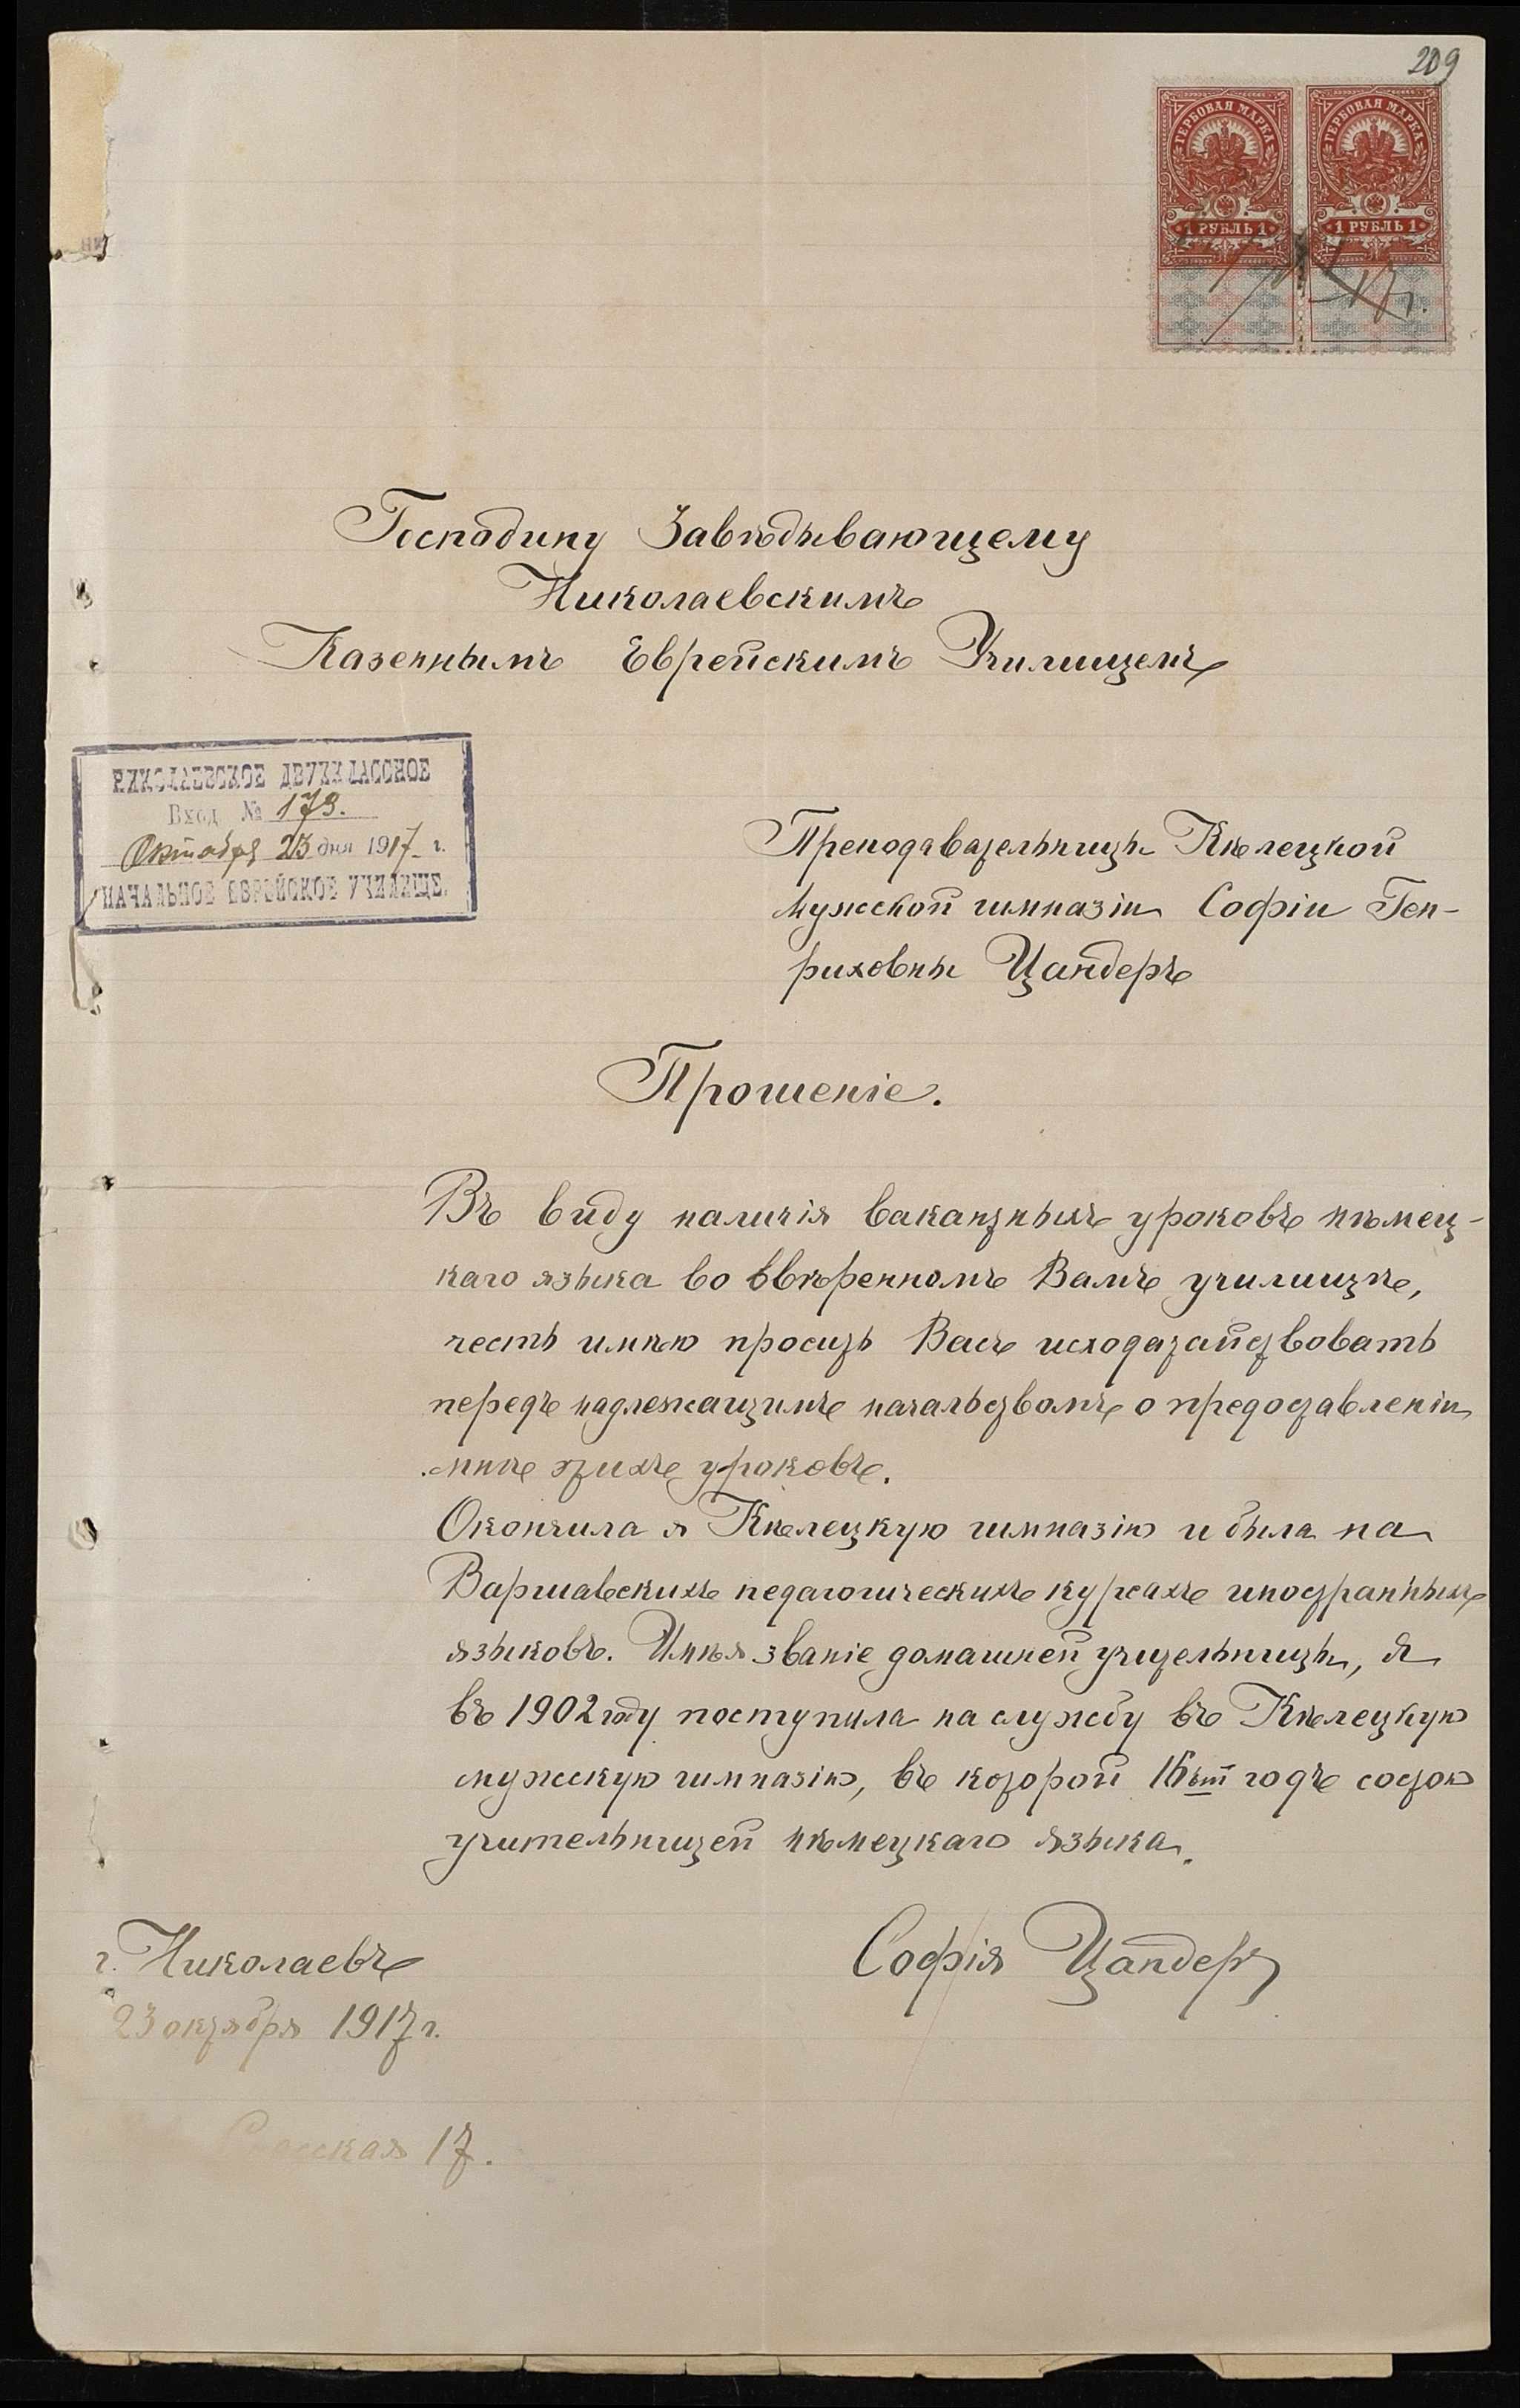 209
ГЕРБОВАЯ МАРКА ГЕРБОВАЯ МАРКА
1 РУБЛЬ 1 1 РУБЛЬ 1
Господину Завѣдывающему
Николаевскимъ
Казеннымъ Еврейскимъ Училищемъ
НИКОЛАЕВСКОЕ ДВУХКЛАССНОЕ
Вход № 173.
Октября 23 дня 1917 г.
НАЧАЛЬНОЕ ЕВРЕЙСКОЕ УЧИЛИЩЕ.
Преподавательницы Кѣлецкой
мужской гимназіи Софіи Ген-
риховны Цандеръ
Прошеніе.
Въ виду наличія вакантныхъ уроковъ нѣмец-
каго языка во ввѣренномъ Вамъ училищѣ,
честь имѣю просить Васъ исходатайствовать
передъ надлежащимъ начальствомъ о предоставленіи
мнѣ этихъ уроковъ.
Окончила я Кѣлецкую гимназію и была на
Варшавскихъ педагогическихъ курсахъ иностранныхъ
языковъ. Имѣя званіе домашней учительницы, я
въ 1902 году поступила на службу въ Кѣлецкую
мужскую гимназію, въ которой 16ый годъ состою
учительницей нѣмецкаго языка.
Софія Цандеръ
г. Николаевъ
23 октября 1917 г.
Спасская 17.